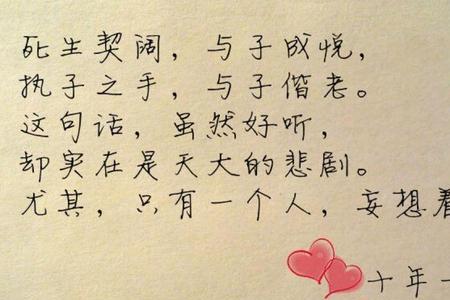 死生契阔，与子成悦，
执子之手，与子偕老。
这句话，虽然好听，
却实在是天大的悲剧。
尤其，只有一个人，妄想看
十年一